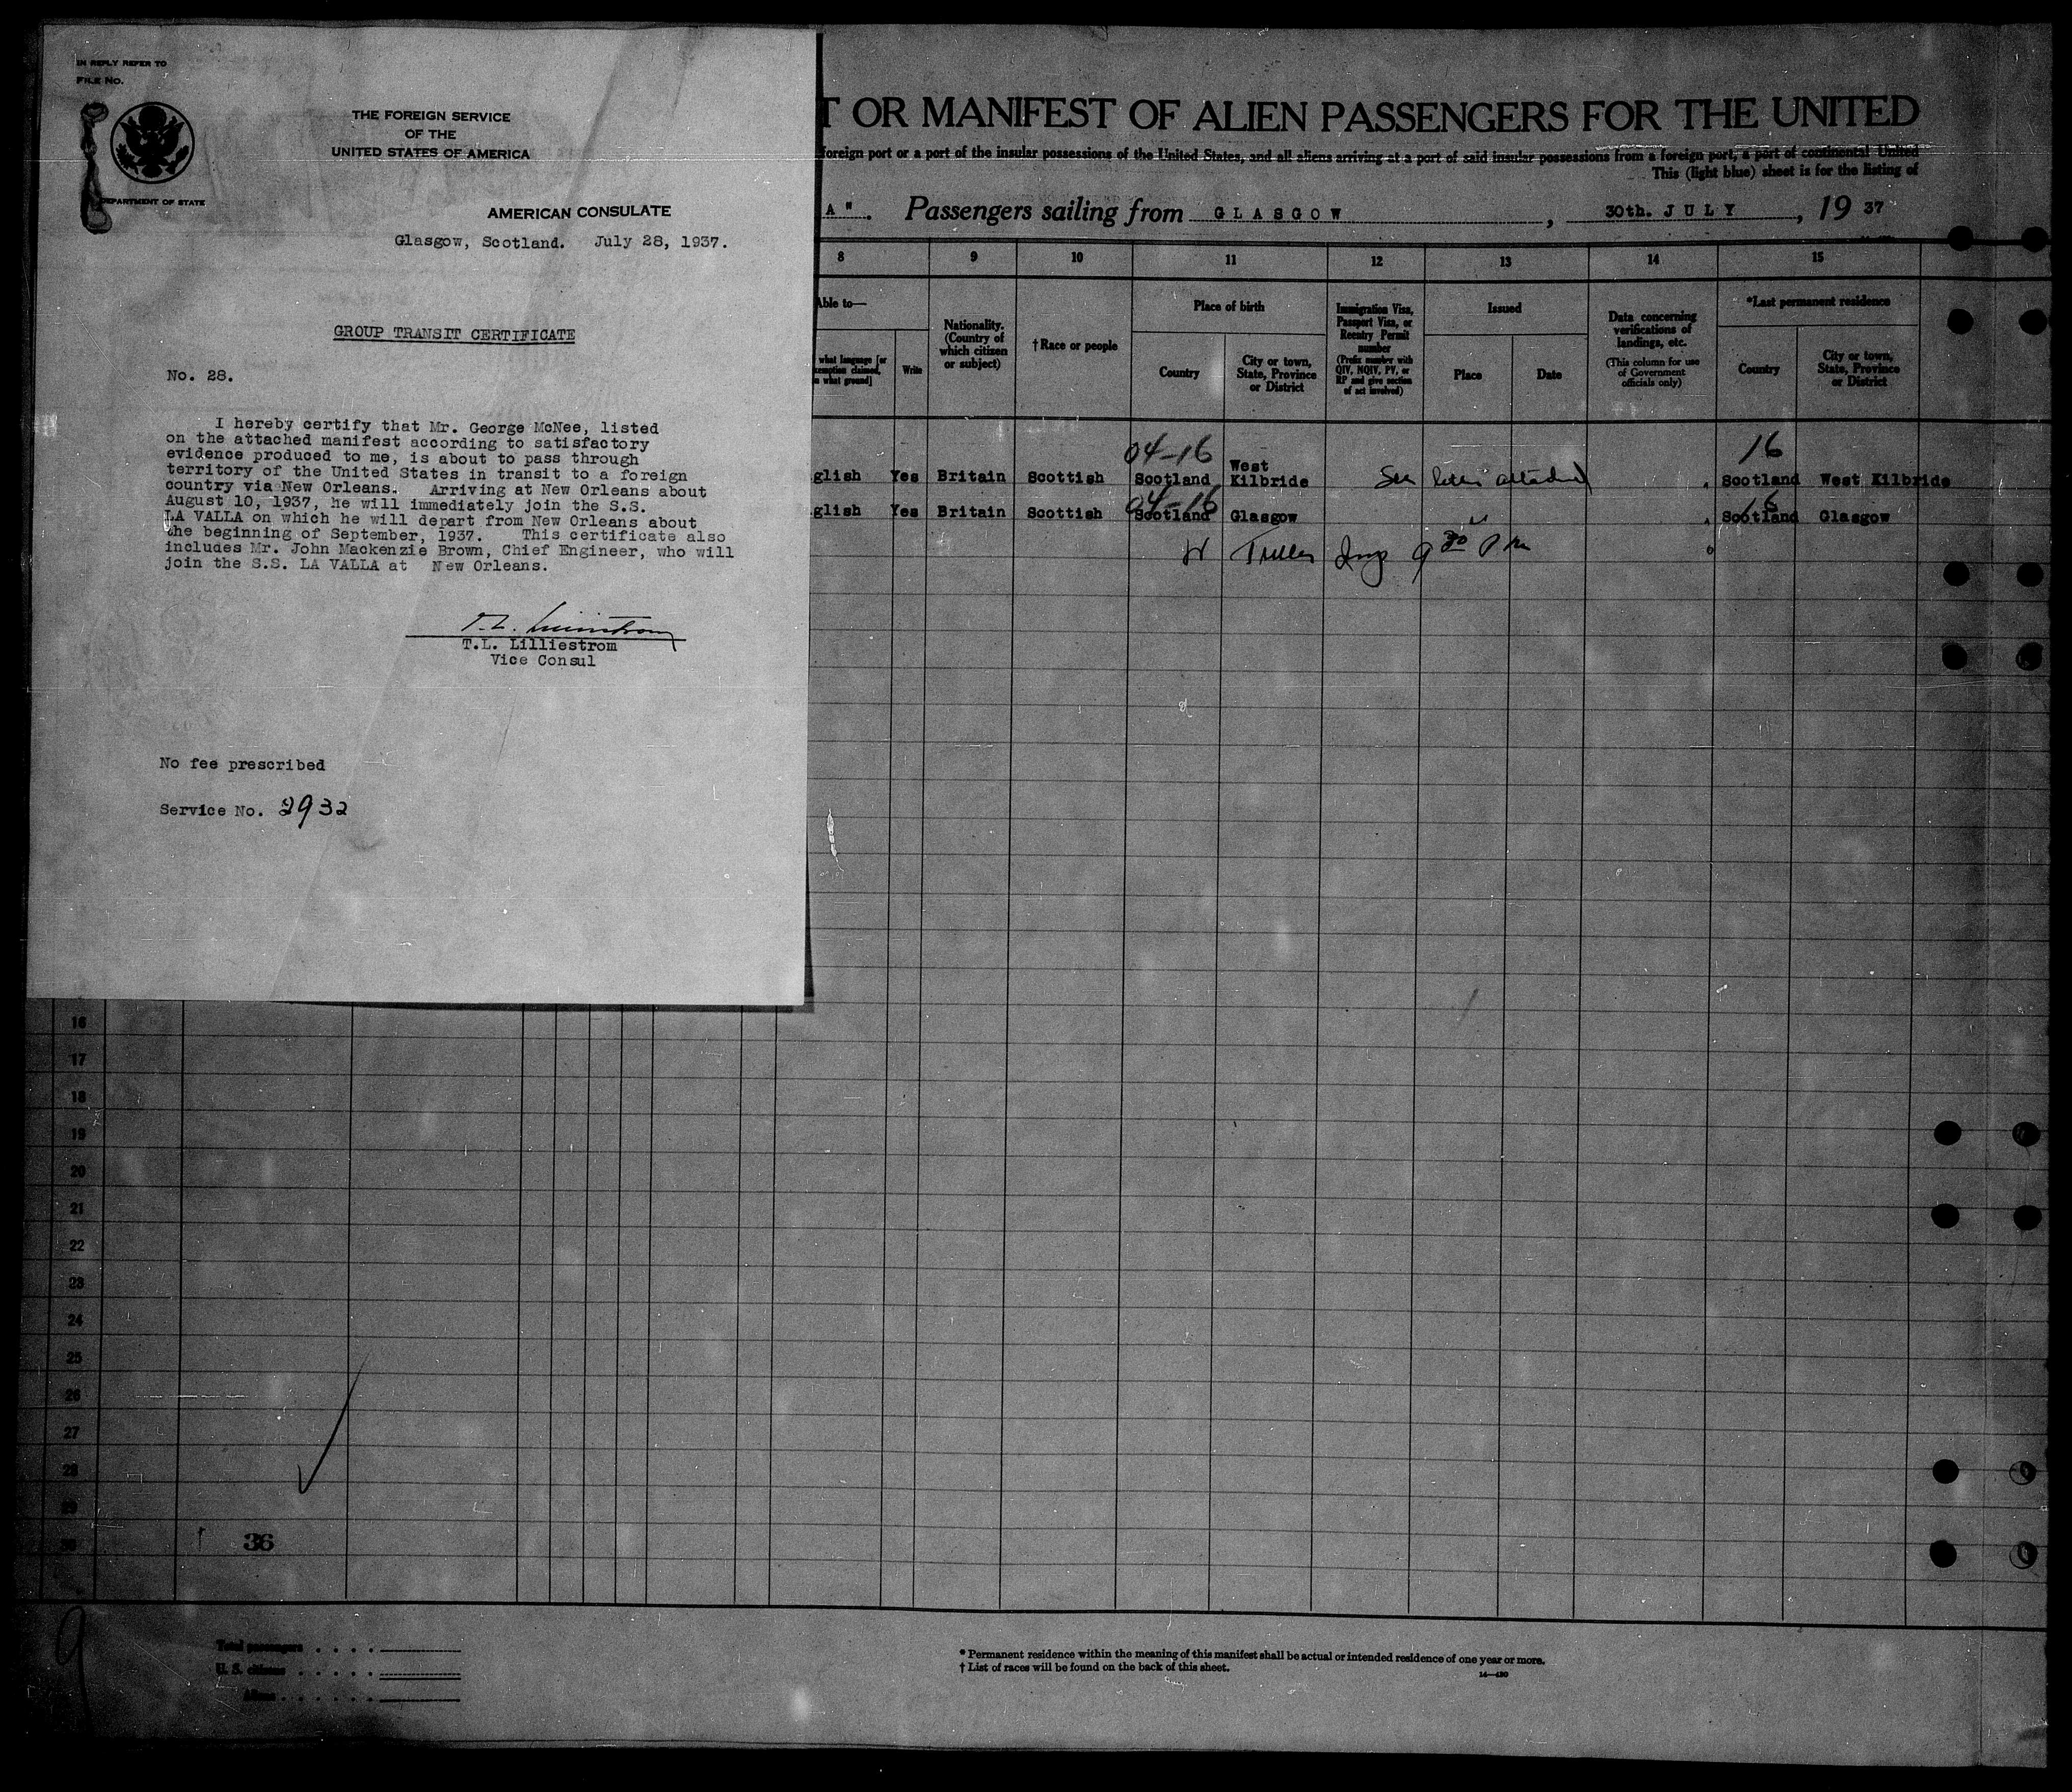 IN REPLY REFER TO
FILE NO.
THE FOREIGN SERVICE
OF THE
UNITED STATES OF AMERICA
DEPARTMENT OF STATE
AMERICAN CONSULATE
Glasgow, Scotland. July 28, 1937.
GROUP TRANSIT CERTIFICATE
No. 28.
I hereby certify that Mr. George McNee, listed
on the attached manifest according to satisfactory
evidence produced to me, is about to pass through
territory of the United States in transit to a foreign
country via New Orleans. Arriving at New Orleans about
August 10, 1937, he will immediately join the S.S.
LA VALLA on which he will depart from New Orleans about
the beginning of September, 1937. This certificate also
includes Mr. John Mackenzie Brown, Chief Engineer, who will
join the S.S. LA VALLA at New Orleans.
T.L. Lilliestrom
Vice Consul
No fee prescribed
Service No. 2932
T OR MANIFEST OF ALIEN PASSENGERS FOR THE UNITED
foreign port or a port of the insular possessions of the United States, and all aliens arriving at a port of said insular possessions from a foreign port, a port of continental United
This (light blue) sheet is for the listing of
A". Passengers sailing from GLASGOW, 30th. JULY, 1937
8 9 10 11 12 13 14 15
Able to—
what language [or
exemption claimed,
on what ground]
Write
Nationality.
(Country of
which citizen
or subject)
†Race or people
Place of birth
Country
City or town,
State, Province
or District
Immigration Visa,
Passport Visa, or
Reentry Permit
number
(Prefix number with
QIV, NQIV, PV, or
RP and give section
of act involved)
Issued
Place
Date
Data concerning
verifications of
landings, etc.
(This column for use
of Government
officials only)
*Last permanent residence
Country
City or town,
State, Province
or District
04-16 16
glish Yes Britain Scottish Scotland West Kilbride See letter attached Scotland West Kilbride
04-16 16
glish Yes Britain Scottish Scotland Glasgow Scotland Glasgow
9 30 P m
16
17
18
19
20
21
22
23
24
25
26
27
28
29
30
36
9
Total passengers
U. S. citizens
Aliens
* Permanent residence within the meaning of this manifest shall be actual or intended residence of one year or more.
† List of races will be found on the back of this sheet.
14—430